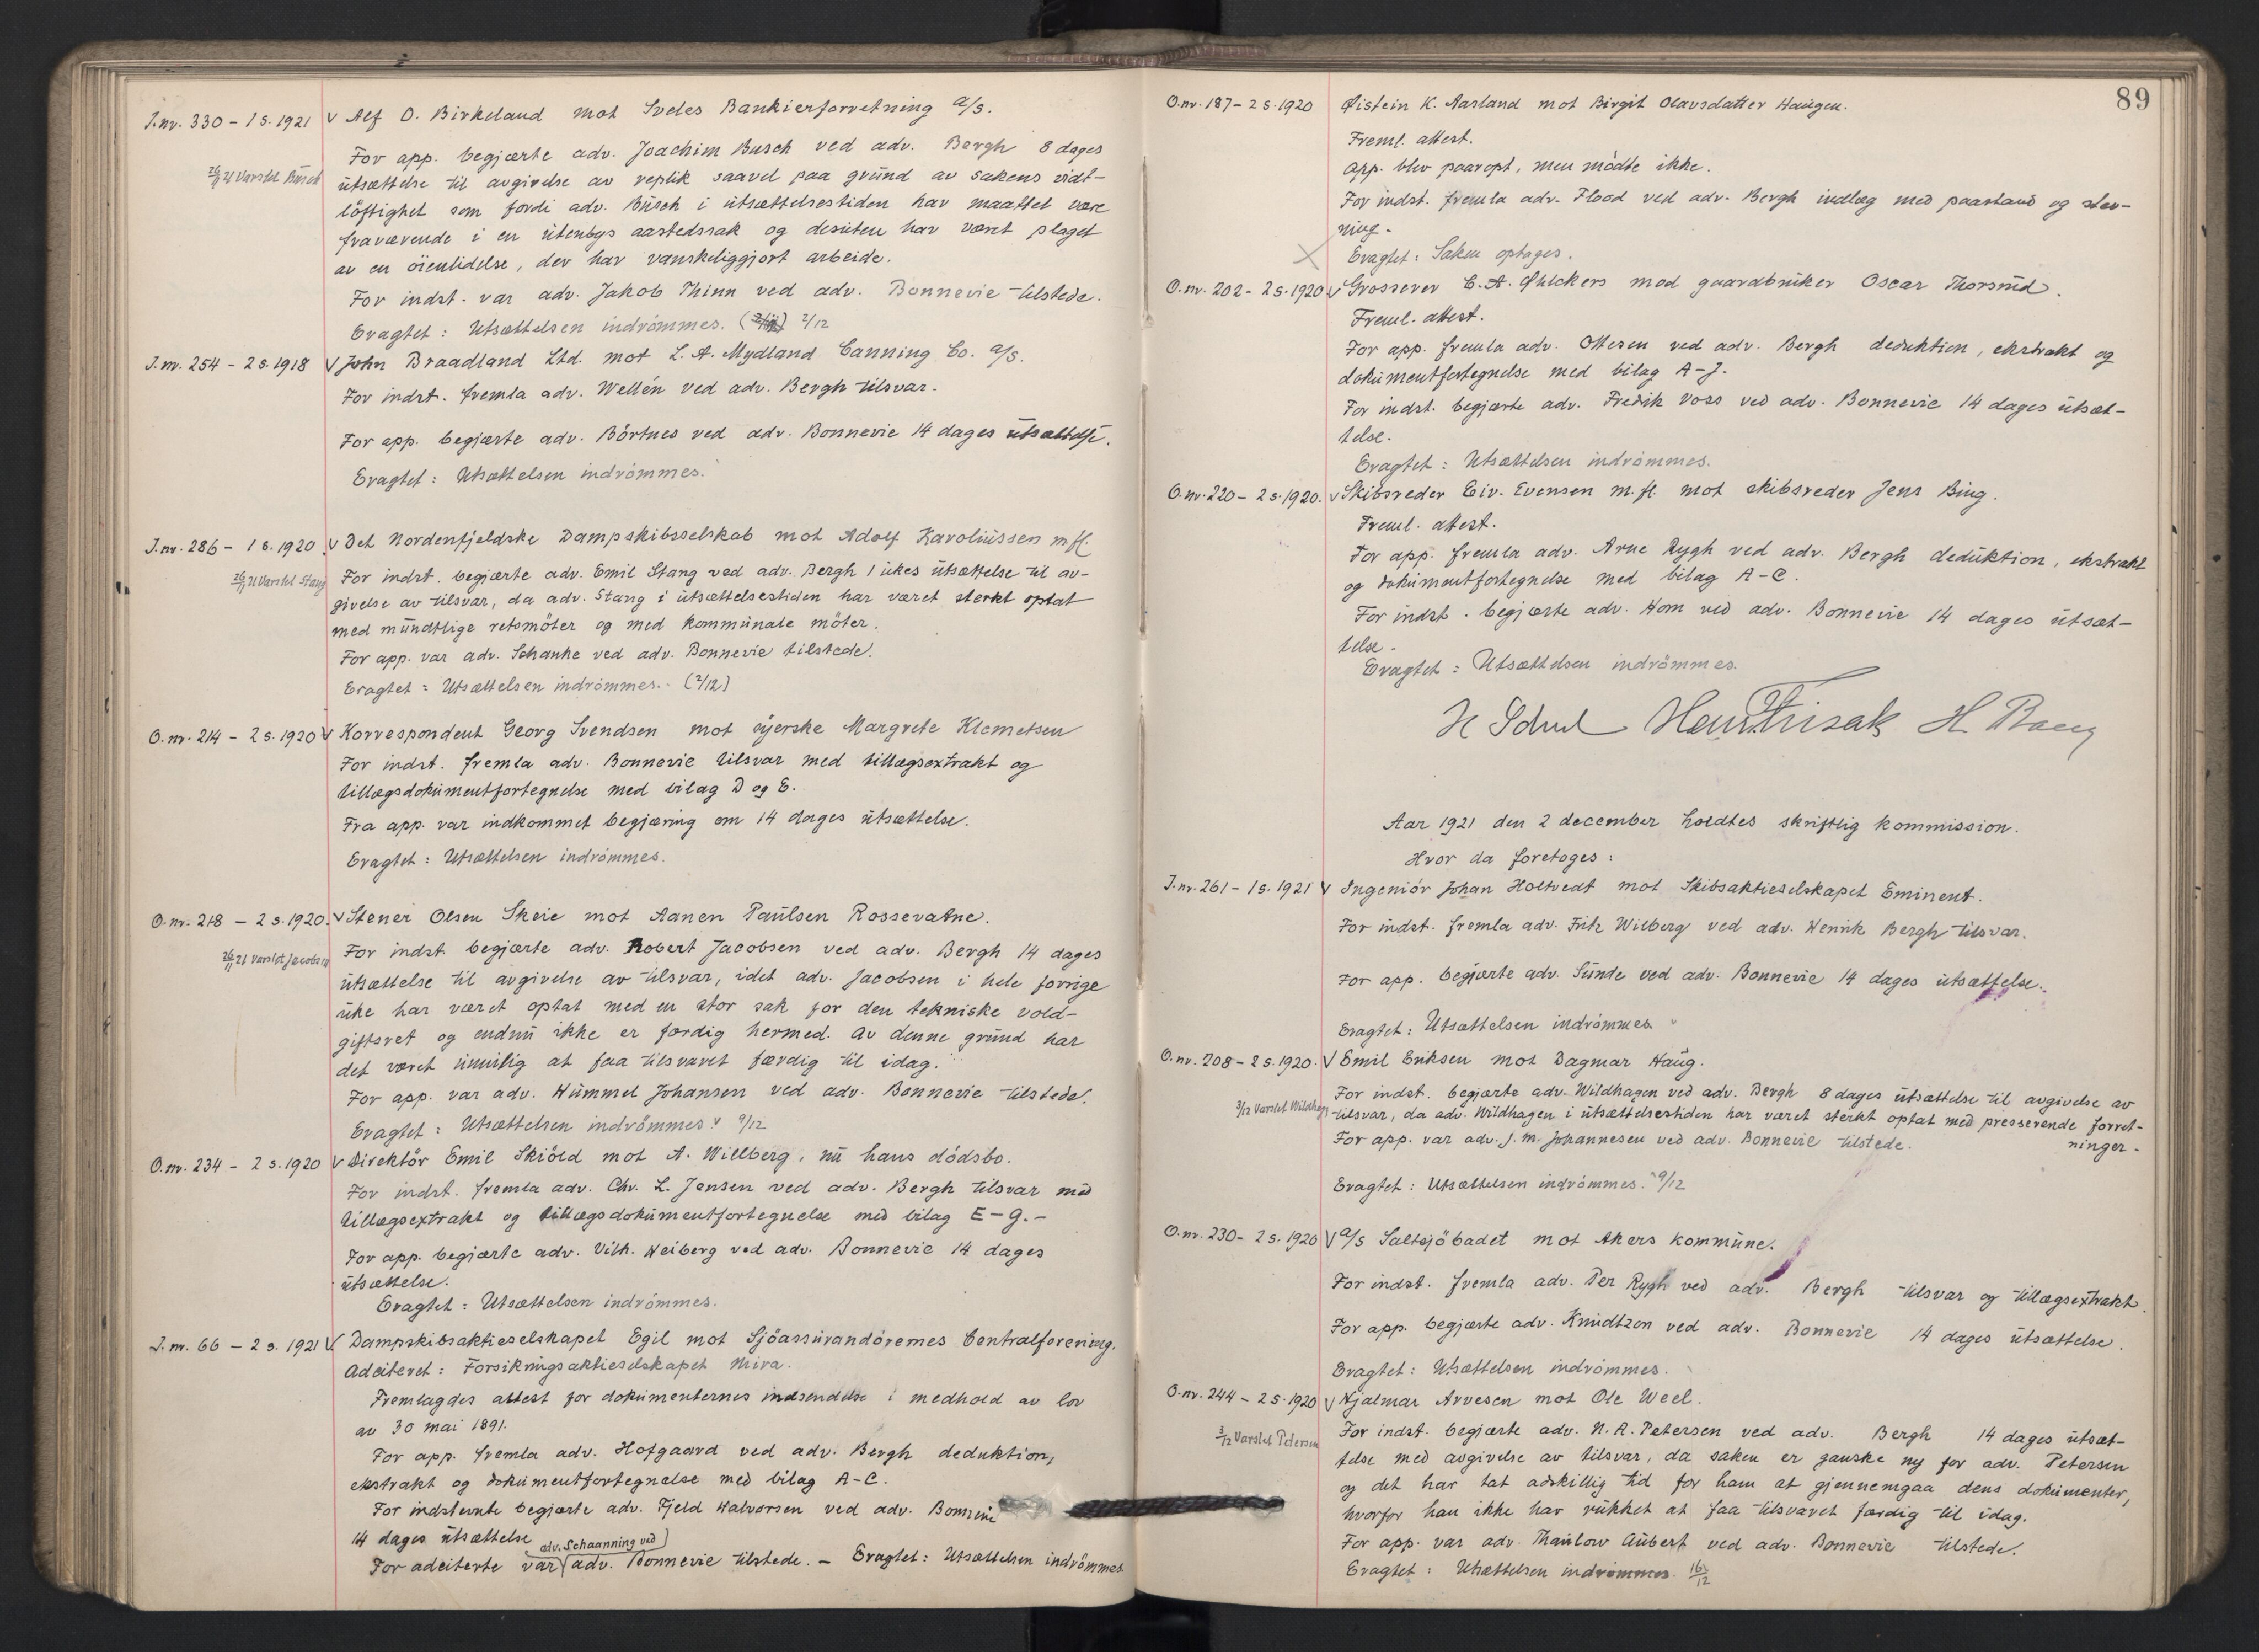 J.nr. 330 – 1 s. 1921 V Alf O. Birkeland mot Sveles Bankierforretning a/s.
For app. begjærte adv. Joachim Busch ved adv. Bergh 8 dages
26/11 21 Varslet Busch
utsættelse til avgivelse av replik saavel paa grund av sakens vidt–
löftighet som fordi adv. Busch i utsættelsestiden har maattet være
fraværende i en utenbys aastedssak og desuten har været plaget
av en öienlidelse, der har vanskeliggjort arbeide.
For indst. var adv. Jakob Thinn ved adv. Bonnevie tilstede.
Eragtet: Utsættelsen indrömmes. 2/12
J.nr. 254 – 2 s. 1918 V John Braadland Ltd. mot L. A. Mydland Canning Co. a/s.
For indst. fremla adv. Wellén ved adv. Bergh tilsvar.
For app. begjærte adv. Börtnes ved adv. Bonnevie 14 dages utsættelse.
Eragtet: Utsættelsen indrömmes.
J.nr. 286 – 1 s. 1920 V Det Nordenfjeldske Dampskibsselskab mot Adolf Karoliussen m.fl.
26/11 21 Varslet Stang
For indst. begjærte adv. Emil Stang ved adv. Bergh 1 ukes utsættelse til av–
givelse av tilsvar, da adv. Stang i utsættelsestiden har været sterkt optat
med mundtlige retsmöter og med kommunale möter.
For app. var adv. Schanke ved adv. Bonnevie tilstede.
Eragtet: Utsættelsen indrömmes. (2/12)
O.nr. 214 – 2 s. 1920 V Korrespondent Georg Svendsen mot syerske Margrete Klemetsen
For indst. fremla adv. Bonnevie tilsvar med tillægsextrakt og
tillægsdokumentfortegnelse med bilag D og E.
Fra app. var indkommet begjæring om 14 dages utsættelse.
Eragtet: Utsættelsen indrömmes.
O.nr. 218 – 2 s. 1920. V Stener Olsen Skeie mot Aanen Paulsen Rossevatne.
26/11 21 Varslet Jacobsen
For indst. begjærte adv. Robert Jacobsen ved adv. Bergh 14 dages
utsættelse til avgivelse av tilsvar, idet adv. Jacobsen i hele forrige
uke har været optat med en stor sak for den tekniske vold–
giftsret og endnu ikke er færdig hermed. Av denne grund har
det været umulig at faa tilsvaret færdig til idag.
For app. var adv. Hummel Johansen ved adv. Bonnevie tilstede.
Eragtet: Utsættelsen indrömmes. 9/12
O.nr. 234 – 2 s. 1920 V Direktör Emil Skiöld mot A. Willberg, nu hans dödsbo.
For indst. fremla adv. Chr. L. Jensen ved adv. Bergh tilsvar med
tillægsextrakt og tillægsdokumentfortegnelse med bilag E–G.–
For app. begjærte adv. Vilh. Heiberg ved adv. Bonnevie 14 dages
utsættelse.
Eragtet: Utsættelsen indrömmes.
J.nr. 66 – 2 s. 1921 V Dampskibsaktieselskapet Egil mot Sjöassurandörernes Centralforening.
Adciteret: Forsikringsaktieselskapet Mira.
Fremlagdes attest for dokumenternes indsendelse i medhold av lov
av 30 mai 1891.
For app. fremla adv. Hofgaard ved adv. Bergh deduktion,
ekstrakt og dokumentfortegnelse med bilag A–C.
For indstevnte begjærte adv. Fjeld Halvorsen ved adv. Bonnevie
14 dages utsættelse
adv. Schaanning ved
For adciterte var adv. Bonnevie tilstede. – Eragtet: Utsættelsen indrömmes
89
O.nr. 187 – 2 s. 1920 Øistein K. Aasland mot Birgit Olavsdatter Haugen.
Freml. attest.
App. blev paaropt, men mödte ikke.
For indst. fremla adv. Flood ved adv. Bergh indlæg med paastand og stev–
ning.
Eragtet: Saken optages.
O.nr. 202 – 2 s. 1920 V Grosserer C. A. mod gaardbruker Oscar Thorsrud.
Freml. attest.
For app. fremla adv. Ottesen ved adv. Bergh deduktion, ekstrakt og
dokumentfortegnelse med bilag A–J.
For indst. begjærte adv. Fredik Voss ved adv. Bonnevie 14 dages utsæt–
telse.
Eragtet: Utsættelsen indrömmes.
O.nr. 220 – 2 s. 1920. V Skibsreder Eiv. Evensen m.fl. mot skibsreder Jens Bing.
Freml. attest.
For app. fremla adv. Arne Rygh ved adv. Bergh deduktion, ekstrakt
og dokumentfortegnelse med bilag A–C.
For indst. begjærte adv. Hom ved adv. Bonnevie 14 dages utsæt–
telse.
Eragtet: Utsættelsen indrömmes.
Aar 1921 den 2 december holdtes skriftlig kommission.
Hvor da foretoges:
J.nr. 261 – 1 s. 1921 V Ingeniör Johan Holtvedt mot Skibsaktieselskapet Eminent.
For indst. fremla adv. Fritz Wilberg ved adv. Henrik Bergh tilsvar.
For app. begjærte adv. Sunde ved adv. Bonnevie 14 dages utsættelse.
Eragtet: Utsættelsen indrömmes
O.nr. 208 – 2 s. 1920. V Emil Eriksen mot Dagmar Haug.
For indst. begjærte adv. Wildhagen ved adv. Bergh 8 dages utsættelse til avgivelse av
3/12 Varslet Wildhagen
tilsvar, da adv. Wildhagen i utsættelsestiden har været sterkt optat med presserende forret–
ninger.
For app. var adv. J. M. Johannesen ved adv. Bonnevie tilstede.
Eragtet: Utsættelsen indrömmes. 9/12
O.nr. 230 – 2 s. 1920 V a/s Saltsjöbadet mot Akers kommune.
For indst. fremla adv. Per Rygh ved adv. Bergh tilsvar og tillægsextrakt.
For app. begjærte adv. Knudtzon ved adv. Bonnevie 14 dages utsættelse.
Eragtet: Utsættelsen indrömmes.
O.nr. 244 – 2 s. 1920 V Hjalmar Arvesen mot Ole Weel.
3/12 Varslet Petersen
For indst. begjærte adv. N. A. Petersen ved adv. Bergh 14 dages utsæt–
telse med avgivelse av tilsvar, da saken er ganske ny for adv. Petersen
og det har tat adskillig tid for ham at gjennemgaa dens dokumenter,
hvorfor han ikke har rukket at faa tilsvaret færdig til idag.
For app. var adv. Thaulow Aubert ved adv. Bonnevie tilstede.
Eragtet: Utsættelsen indrömmes 16/12